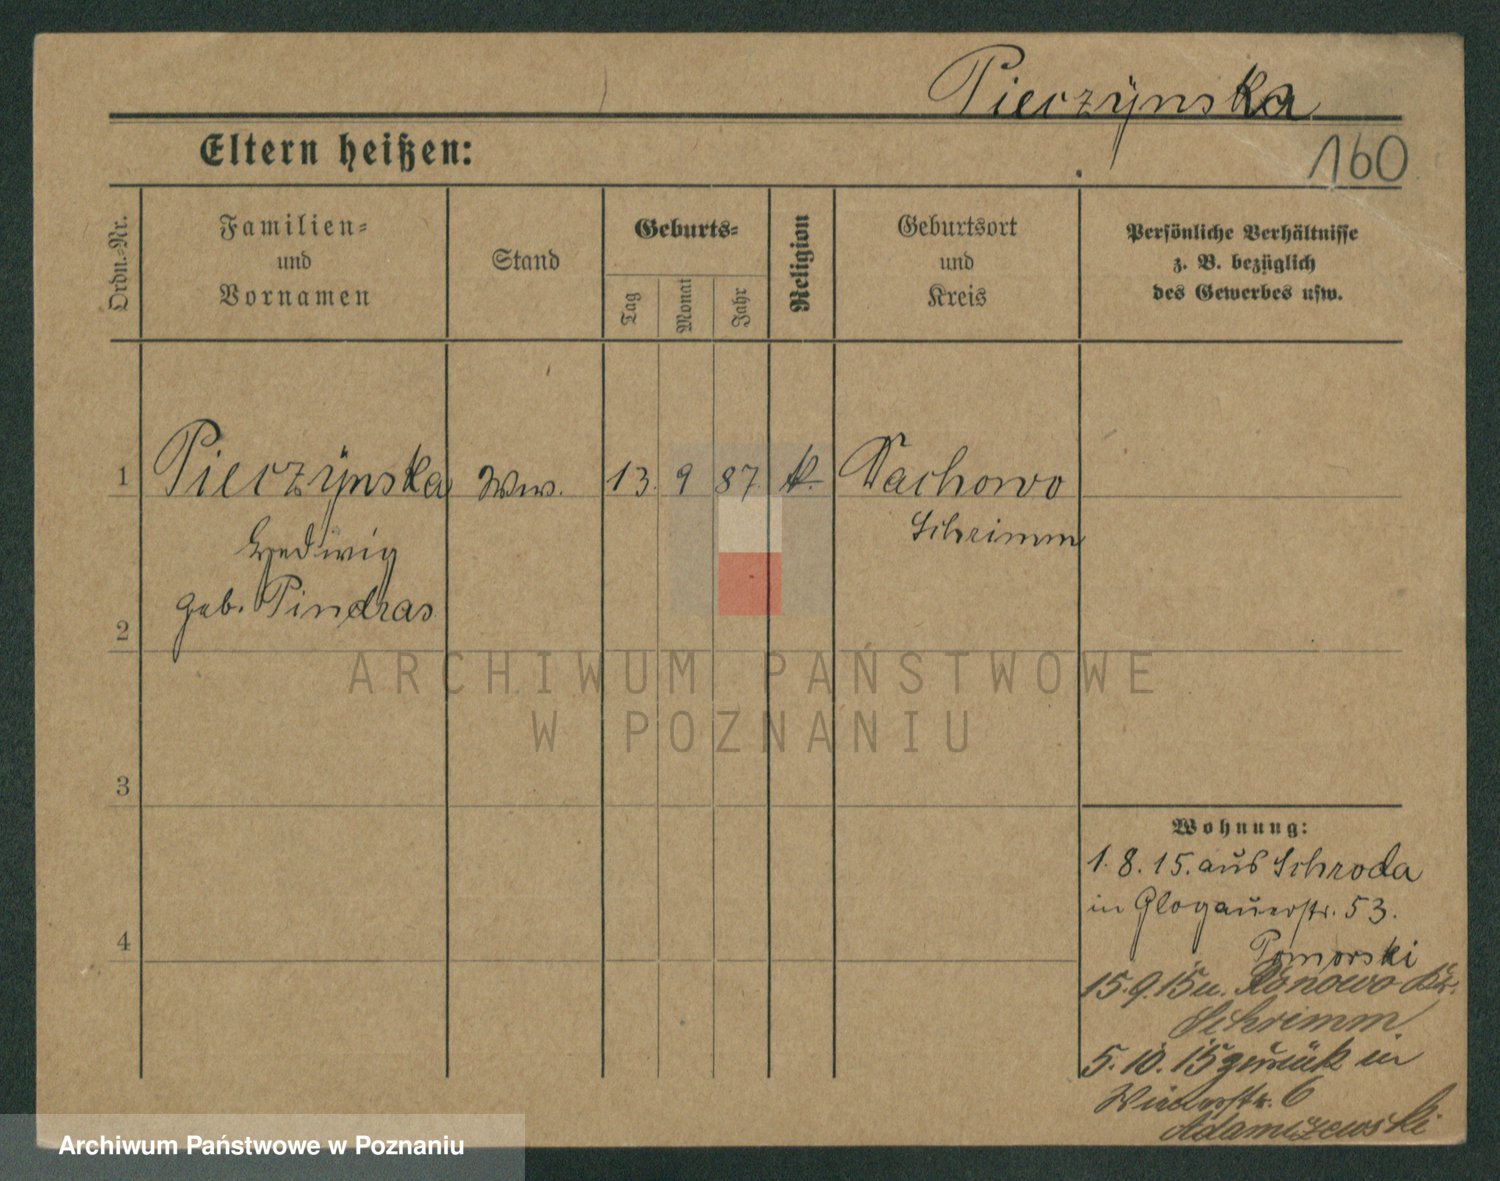 Pieczÿnska
Eltern heißen:
160
Ordn.-Nr.
Familien-
und
Vornamen
Stand
Geburts-
Tag
Monat
Jahr
Religion
Geburtsort
und
Kreis
Persönliche Verhältnisse
z. B. bezüglich
des Gewerbes usw.
1 Pieczÿnska Ww. 13. 9 87 k. Tachowo
Hedwig Schrimm
geb. Pindras
2
3
4
ARCHIWUM PAŃSTWOWE
W POZNANIU
Wohnung:
1. 8. 15. aus Schroda
in Glogauerstr. 53.
Pomorski
15.9.15 n. Konowo Kr.
Schrimm
5. 10. 15 zurück in
6
Adamczewski
Archiwum Państwowe w Poznaniu